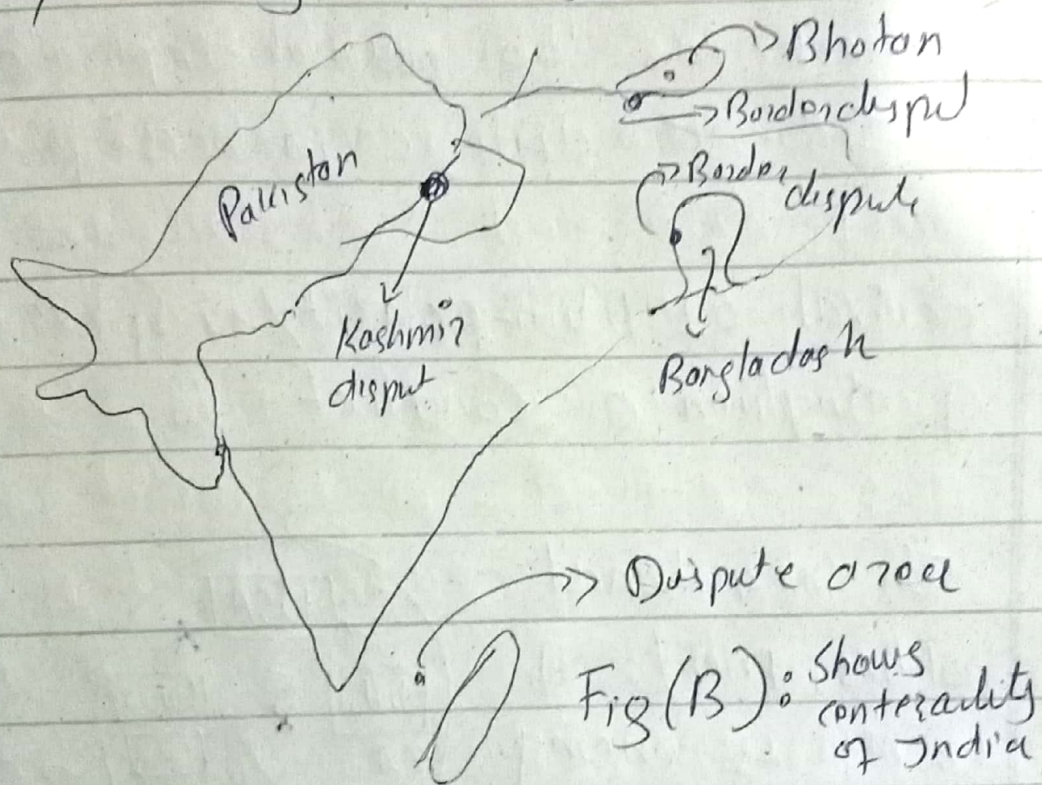 Bhotan
Border disput
Border
dispute
Pakistan
Kashmir
disput
Bangladash
Dispute area
Fig (B): Shows
centerality
of India